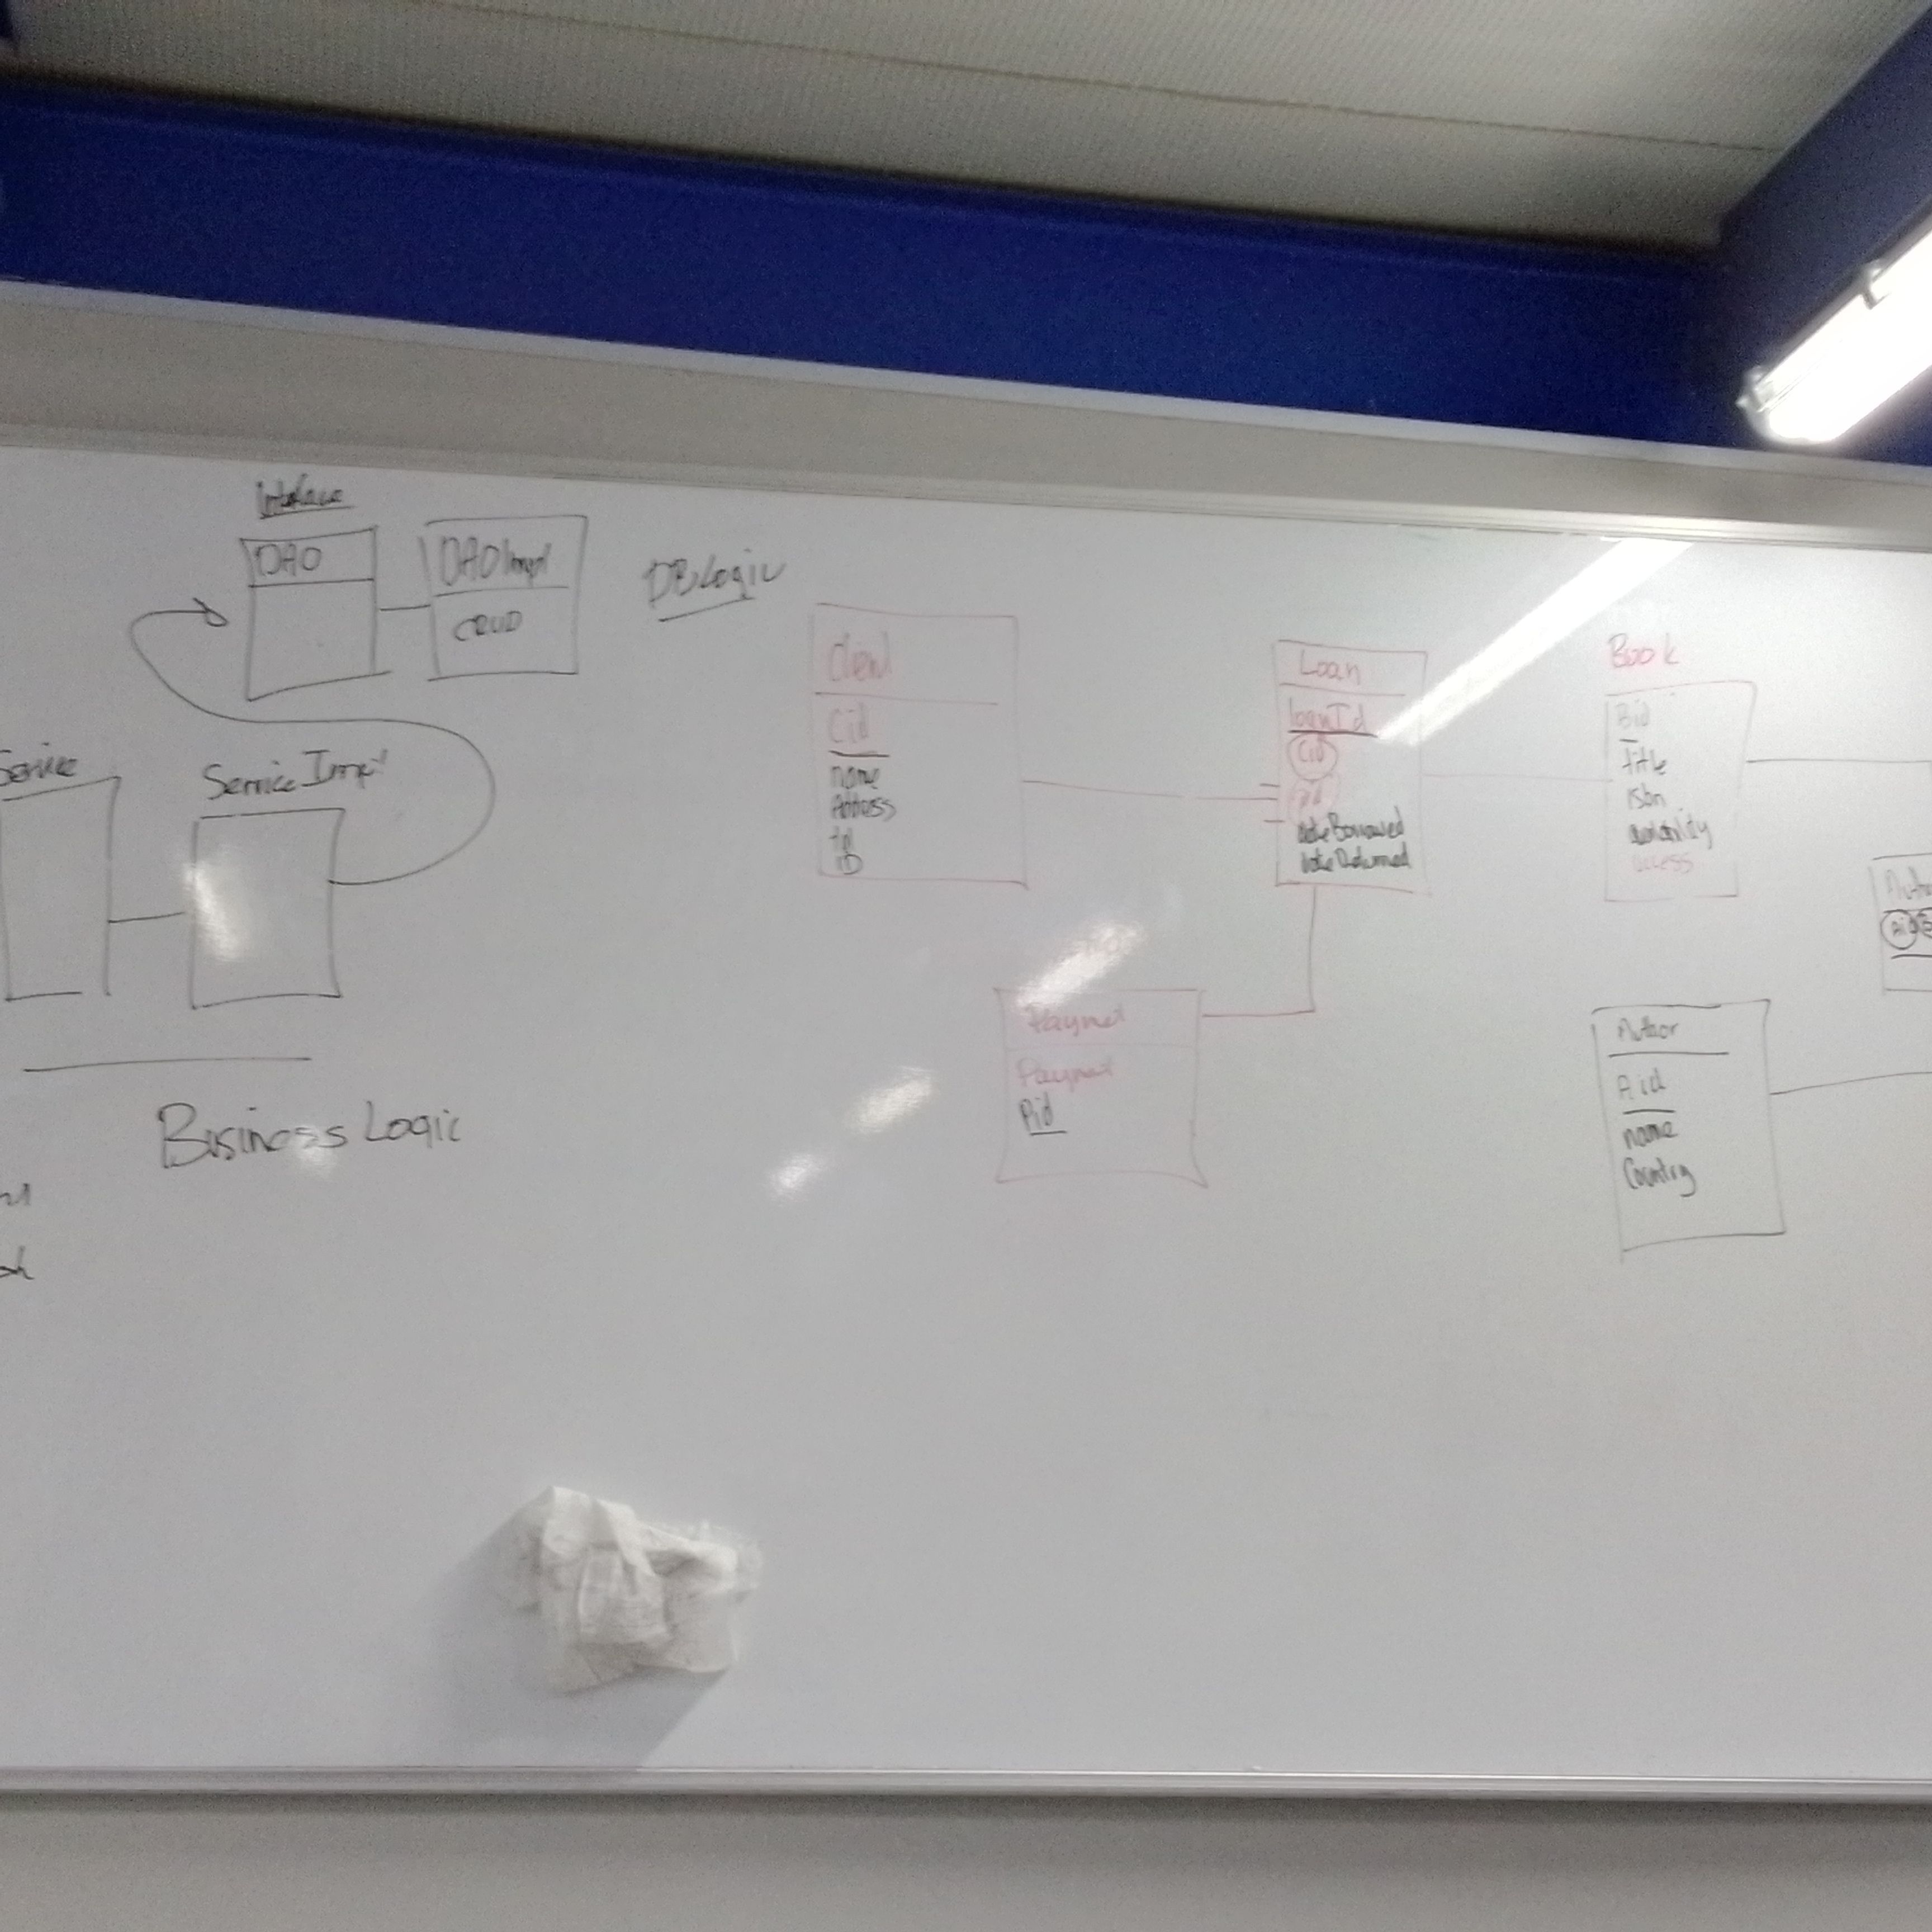 Interface
DAO
DAOImpl
CRUD
DBLogic
Service
Service Impl
Business Logic
Client
Cid
name
Address
tel
Loan
loanId
Cid
dateBorrowed
dateReturned
Book
Bid
title
isbn
availability
access
Payment
Payment
Pid
Author
Aid
name
Country
Autho
Aid